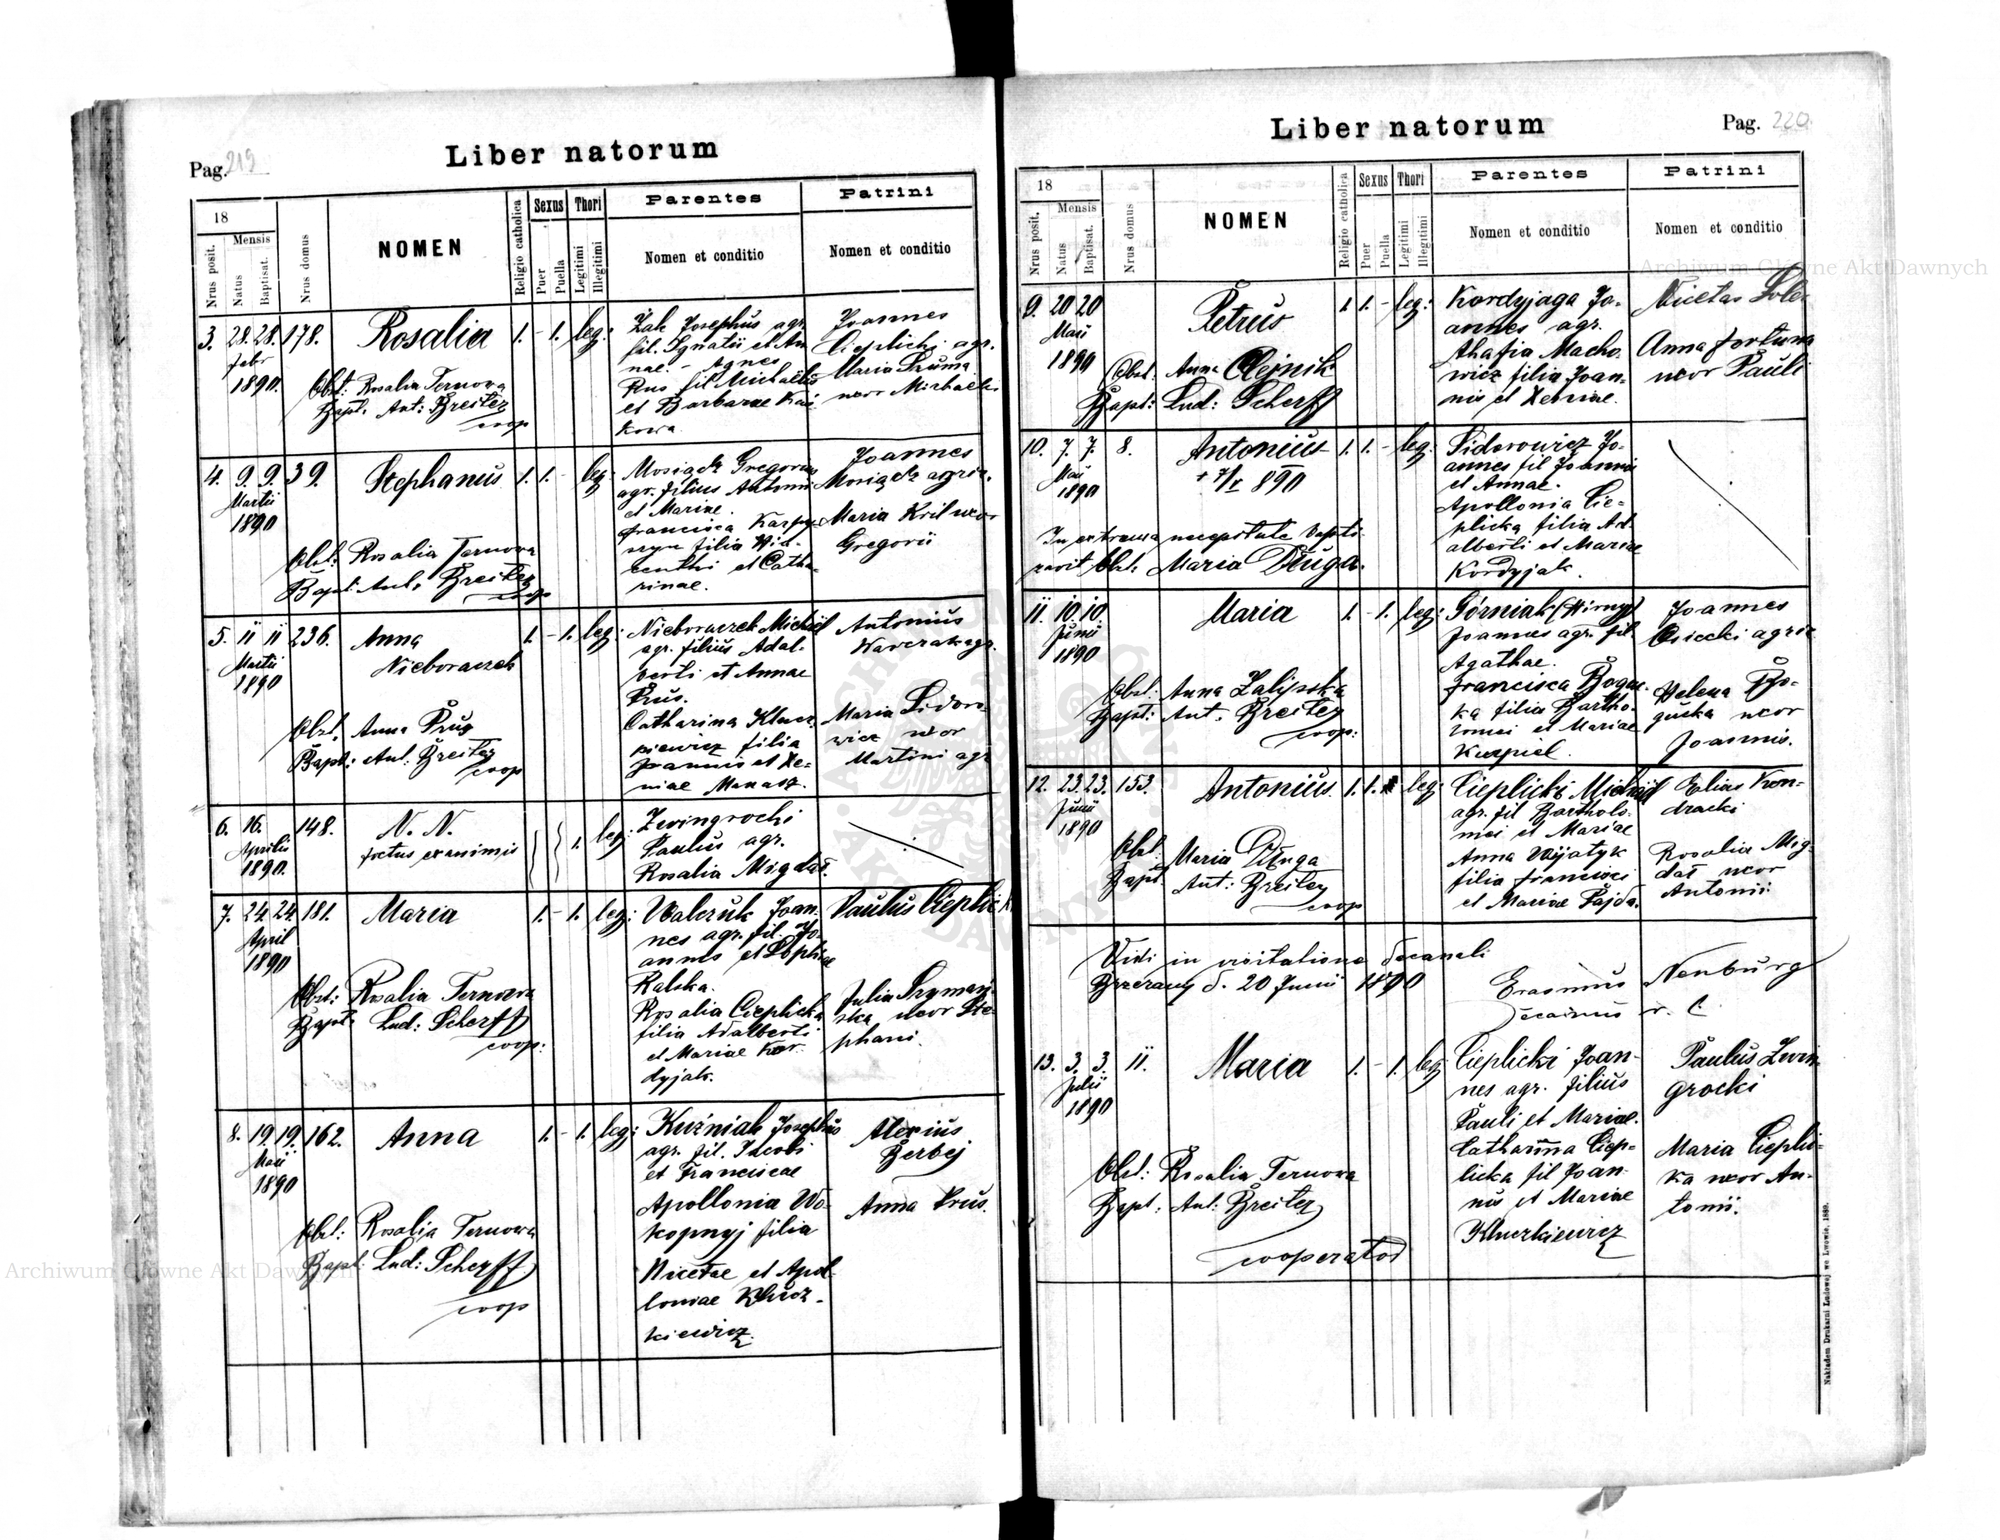 Pag. 219
Liber natorum
18
Mensis
Nrus posit.
Natus
Baptisat.
Nrus domus
NOMEN
Religio catholica
Sexus
Puer
Puella
Thori
Legitimi
Illegitimi
Parentes
Nomen et conditio
Patrini
Nomen et conditio
3. 28. 28. 178. Rosalia 1. - 1. leg:
Febr
1890.
Obst: Rosalia Ternova
Bapt. Ant: Breiter
coop
Żak Josephus agr.
fil. Ignatii et An
nae. - Agnes
Prus fil Michaelis
et Barbarae
Joannes
Cieplicki agr.
Maria
uxor Michaelis
4. 9. 9. 39. Stephanus 1. 1. - leg:
Martii
1890
Obst: Rosalia Ternova
Bapt: Ant. Breiter
coop
Mosiądz Gregorius
agr. filius Antonii
et Mariae.
Francisca
filia
et Catha-
rinae.
Joannes
Mosiądz agric.
Maria Kril uxor
Gregorii
5. 11 11 236. Anna 1. - 1. leg:
Martii
1890
Nieboraczek
Obst. Anna Prus
Bapt: Ant: Breiter
coop
Nieboraczek Michael
agr. filius Adal-
berti et Annae
Prus.
Catharina
filia
Joannis et Xe-
niae
Antonius
Wawrzak agr.
Maria Sidoro-
wicz uxor
Martini agr
6. 16. 148. N. N. 1. leg:
Aprilis
1890.
foetus exanimis
Zwingrocki
Paulus agr.
Rosalia Migdał.
7. 24 24 181. Maria 1. - 1. leg:
April
1890
Obst: Rosalia Ternova
Bapt. Lud: Scherff
coop:
Walczuk Joan-
nes agr. fil. Jo-
annis et Sophiae
Ralska.
Rosalia Cieplicka
filia Adalberti
et Mariae Kor-
dyjak.
Paulus Cieplicki
Julia Szyman-
ska uxor Ste-
phani.
8. 19. 19. 162. Anna 1. - 1. leg:
Maii
1890
Obst: Rosalia Ternova
Bapt: Lud: Scherff
coop
Kuźniak Josephus
agr. fil. Jacobi
et Franciscae
Apollonia Wo-
kopnyj filia
Nicetae et Apol-
loniae Klucz-
kiewicz.
Alexius
Berbej
Anna Prus.
Liber natorum
Pag. 220
18
Mensis
Nrus posit.
Natus
Baptisat.
Nrus domus
NOMEN
Religio catholica
Sexus
Puer
Puella
Thori
Legitimi
Illegitimi
Parentes
Nomen et conditio
Patrini
Nomen et conditio
9. 20 20 Petrus 1. 1. - leg:
Maii
1890
Obst: Anna Olejnik
Bapt: Lud: Scherff
Kordyjaga Jo-
annes agr.
Ahafia Macho-
wicz filia Joan-
nis et Xeniae.
Nicetas
Anna Fortuna
uxor Pauli
10. 7. 7. 8. Antonius 1. 1. - leg:
Maii
1890
+ 7/V 890
In extrema necessitate bapti-
zavit Obst. Maria Długa.
Sidorowicz Jo-
annes fil Joannis
et Annae.
Apollonia Cie-
plicka filia Ad
alberti et Mariae
Kordyjak.
11. 10. 10. Maria 1. - 1. leg:
Junii
1890
Obst: Anna Zalipska
Bapt: Ant. Breiter
coop:
Górniak (Hirnyj)
Joannes agr. fil.
Agathae.
Francisca Bogac-
ka filia Bartho-
lomei et Mariae
Kurpiel.
Joannes
Osiecki agric
Helena
uxor
Joannis.
12. 23. 23. 153. Antonius. 1. 1. leg:
Junii
1890
Obst: Maria Długa
Bapt. Ant: Breiter
coop
Cieplicki Michael
agr. fil Bartholo-
mei et Mariae
Anna Wojatyk
filia Francisci
et Mariae Pajda.
Elias Kon-
dracki
Rosalia Mig-
dał uxor
Antonii
Vidi in visitatione decanali
Brzezany d. 20 Junii 1890
Erasmus Neuburg
Decanus
13. 3. 3. 11. Maria 1. - 1. leg:
Julii
1890
Obst: Rosalia Ternova
Bapt: Ant: Breiter
cooperator
Cieplicki Joan-
nes agr. filius
Pauli et Mariae.
Catharina Ciep-
licka fil Joan-
nis et Mariae
Kluczkiewicz
Paulus Zwin-
grocki
Maria Cieplic-
ka uxor An-
tonii.
Nakładem Drukarni Ludowej we Lwowie. 1889.
Archiwum Główne Akt Dawnych
Archiwum Główne Akt Dawnych